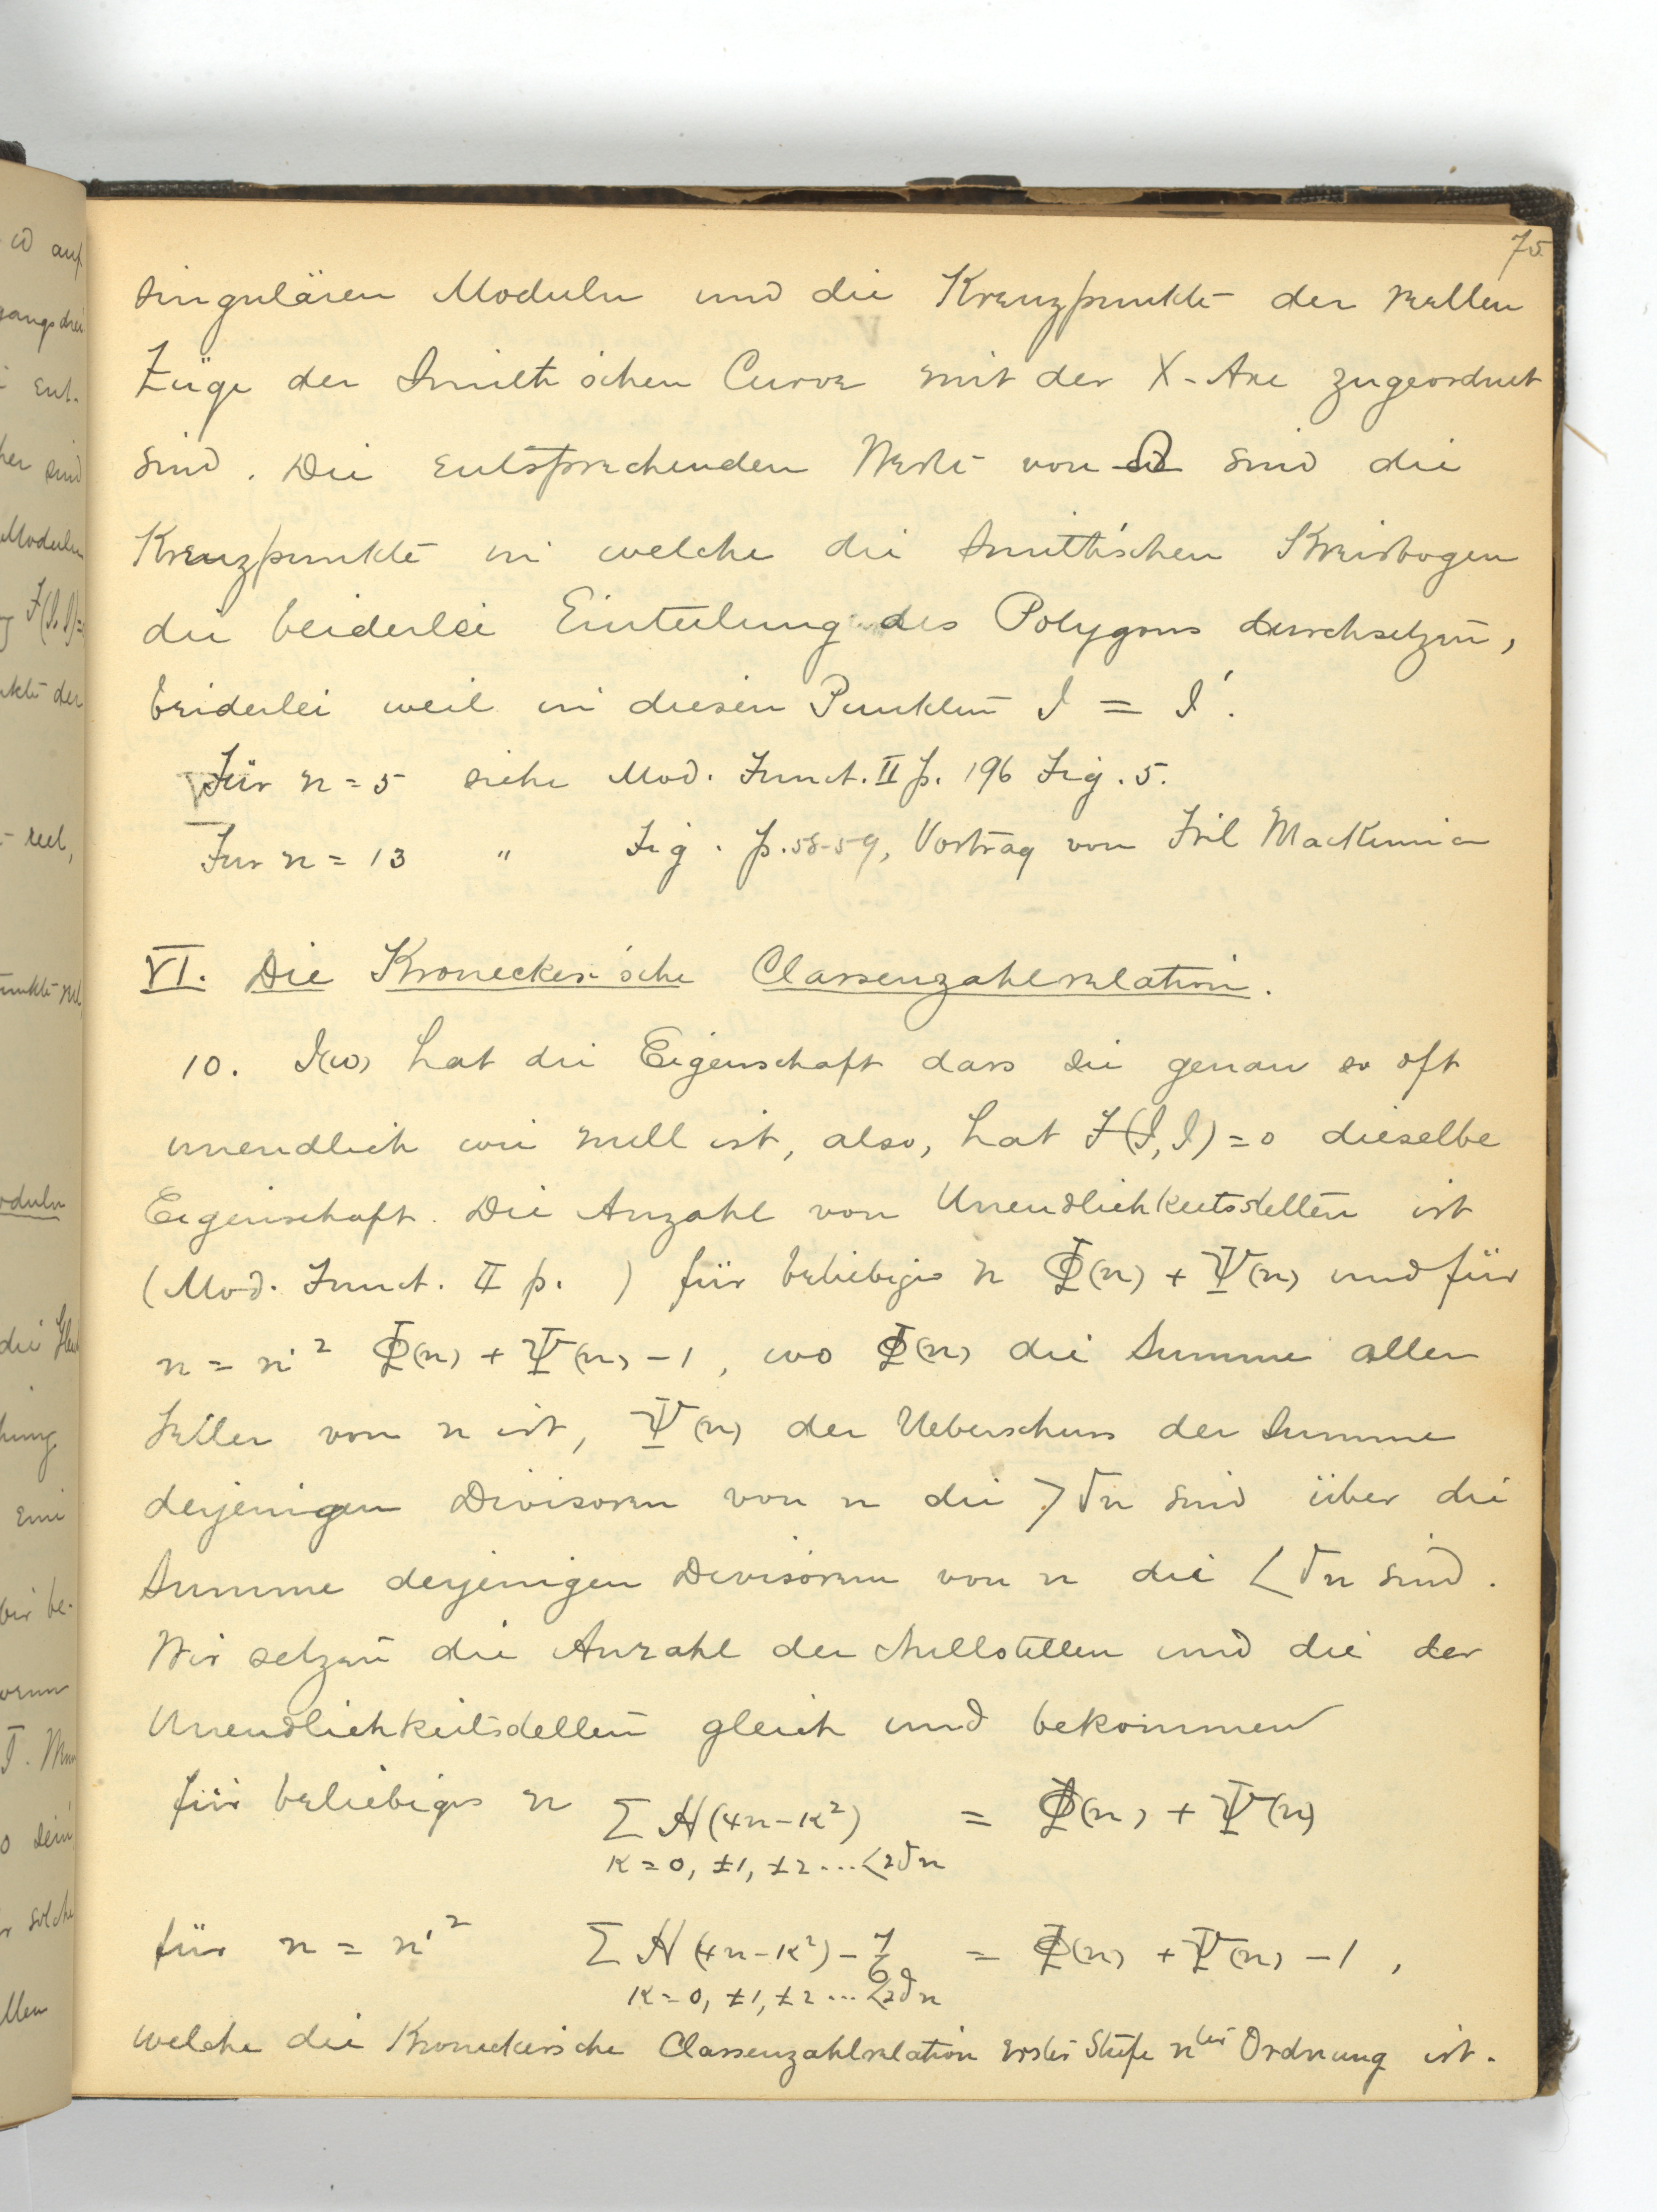 75
singulären Moduln und die Kreuzpunkte der reellen
Züge der Smith'schen Curve mit der X-Axe zugeordnet
sind. Die entsprechenden Werte von ω sind die
Kreuzpunkte in welche die Smith'schen Kreisbogen
die beiderlei Einteilung des Polygons durchsetzen,
beiderlei weil in diesen Punkten J = J'.
Für n = 5 siehe Mod. Funct. II p. 196 Fig. 5.
Fur n = 13 " Fig. p. 58-59, Vortrag von Frl MacKinnon
VI. Die Kronecker'sche Classenzahlrelation.
10. J(ω) hat die Eigenschaft dass sie genau so oft
unendlich wie null ist, also, hat F(J, J) = 0 dieselbe
Eigenschaft. Die Anzahl von Unendlichkeitsstellen ist
(Mod. Funct. II p. ) für beliebiges n Φ(n) + Ψ(n) und für
n = n'² Φ(n) + Ψ(n) - 1, wo Φ(n) die Summe aller
Teiler von n ist, Ψ(n) der Ueberschuss der Summe
derjenigen Divisoren von n die > √n sind über die
Summe derjenigen Divisoren von n die < √n sind.
Wir setzen die Anzahl der Nullstellen und die der
Unendlichkeitsstellen gleich und bekommen
für beliebiges n Σ H(4n - κ²) = Φ(n) + Ψ(n)
κ = 0, ±1, ±2 ... < 2√n
für n = n'² Σ H(4n - κ²) - 7/6 = Φ(n) + Ψ(n) - 1,
κ = 0, ±1, ±2 ... < 2√n
welche die Kronecker'sche Classenzahlrelation erster Stufe nter Ordnung ist.
ω auf
gangsdrei
ent.
her sind
Moduln
F(J, J) =
nkte der
reel,
unkte rel
oduln
die
hung
eine
wir be-
o dein
r solche
llen